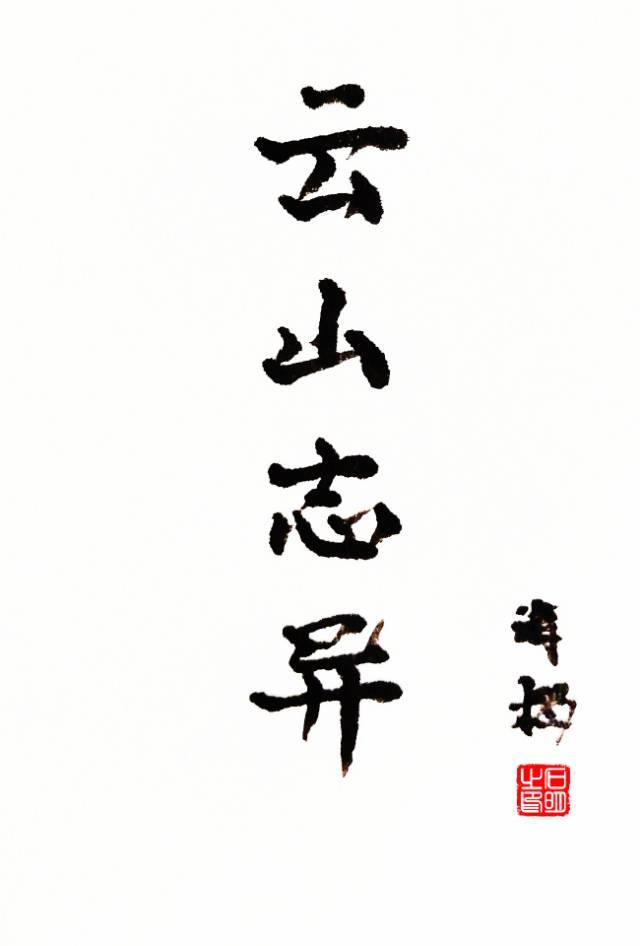 云山志异